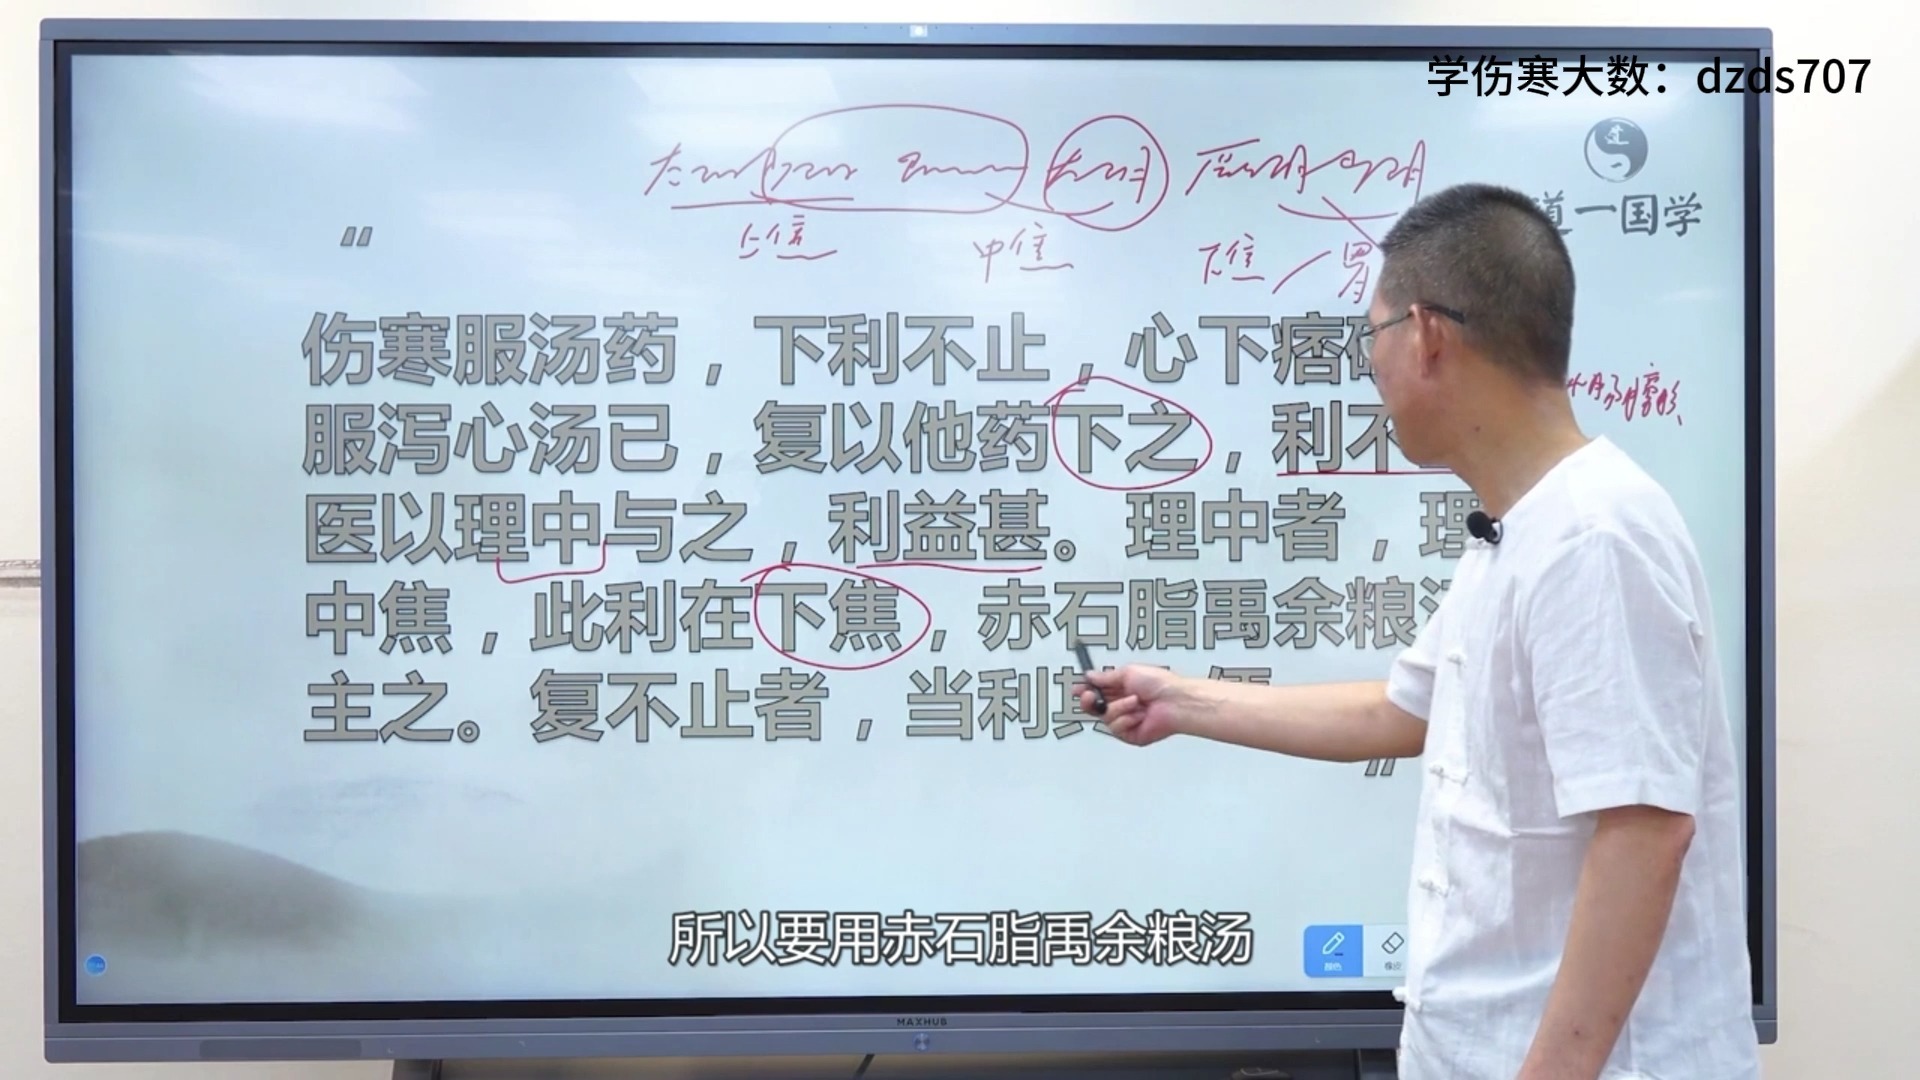 学伤寒大数：dzds707
道一国学
上焦
中焦
下焦
胃
“
伤寒服汤药，下利不止，心下痞
服泻心汤已，复以他药下之，利不
医以理中与之，利益甚。理中者，理
中焦，此利在下焦，赤石脂禹余粮
主之。复不止者，当利其
”
所以要用赤石脂禹余粮汤
颜色
橡皮
MAXHUB